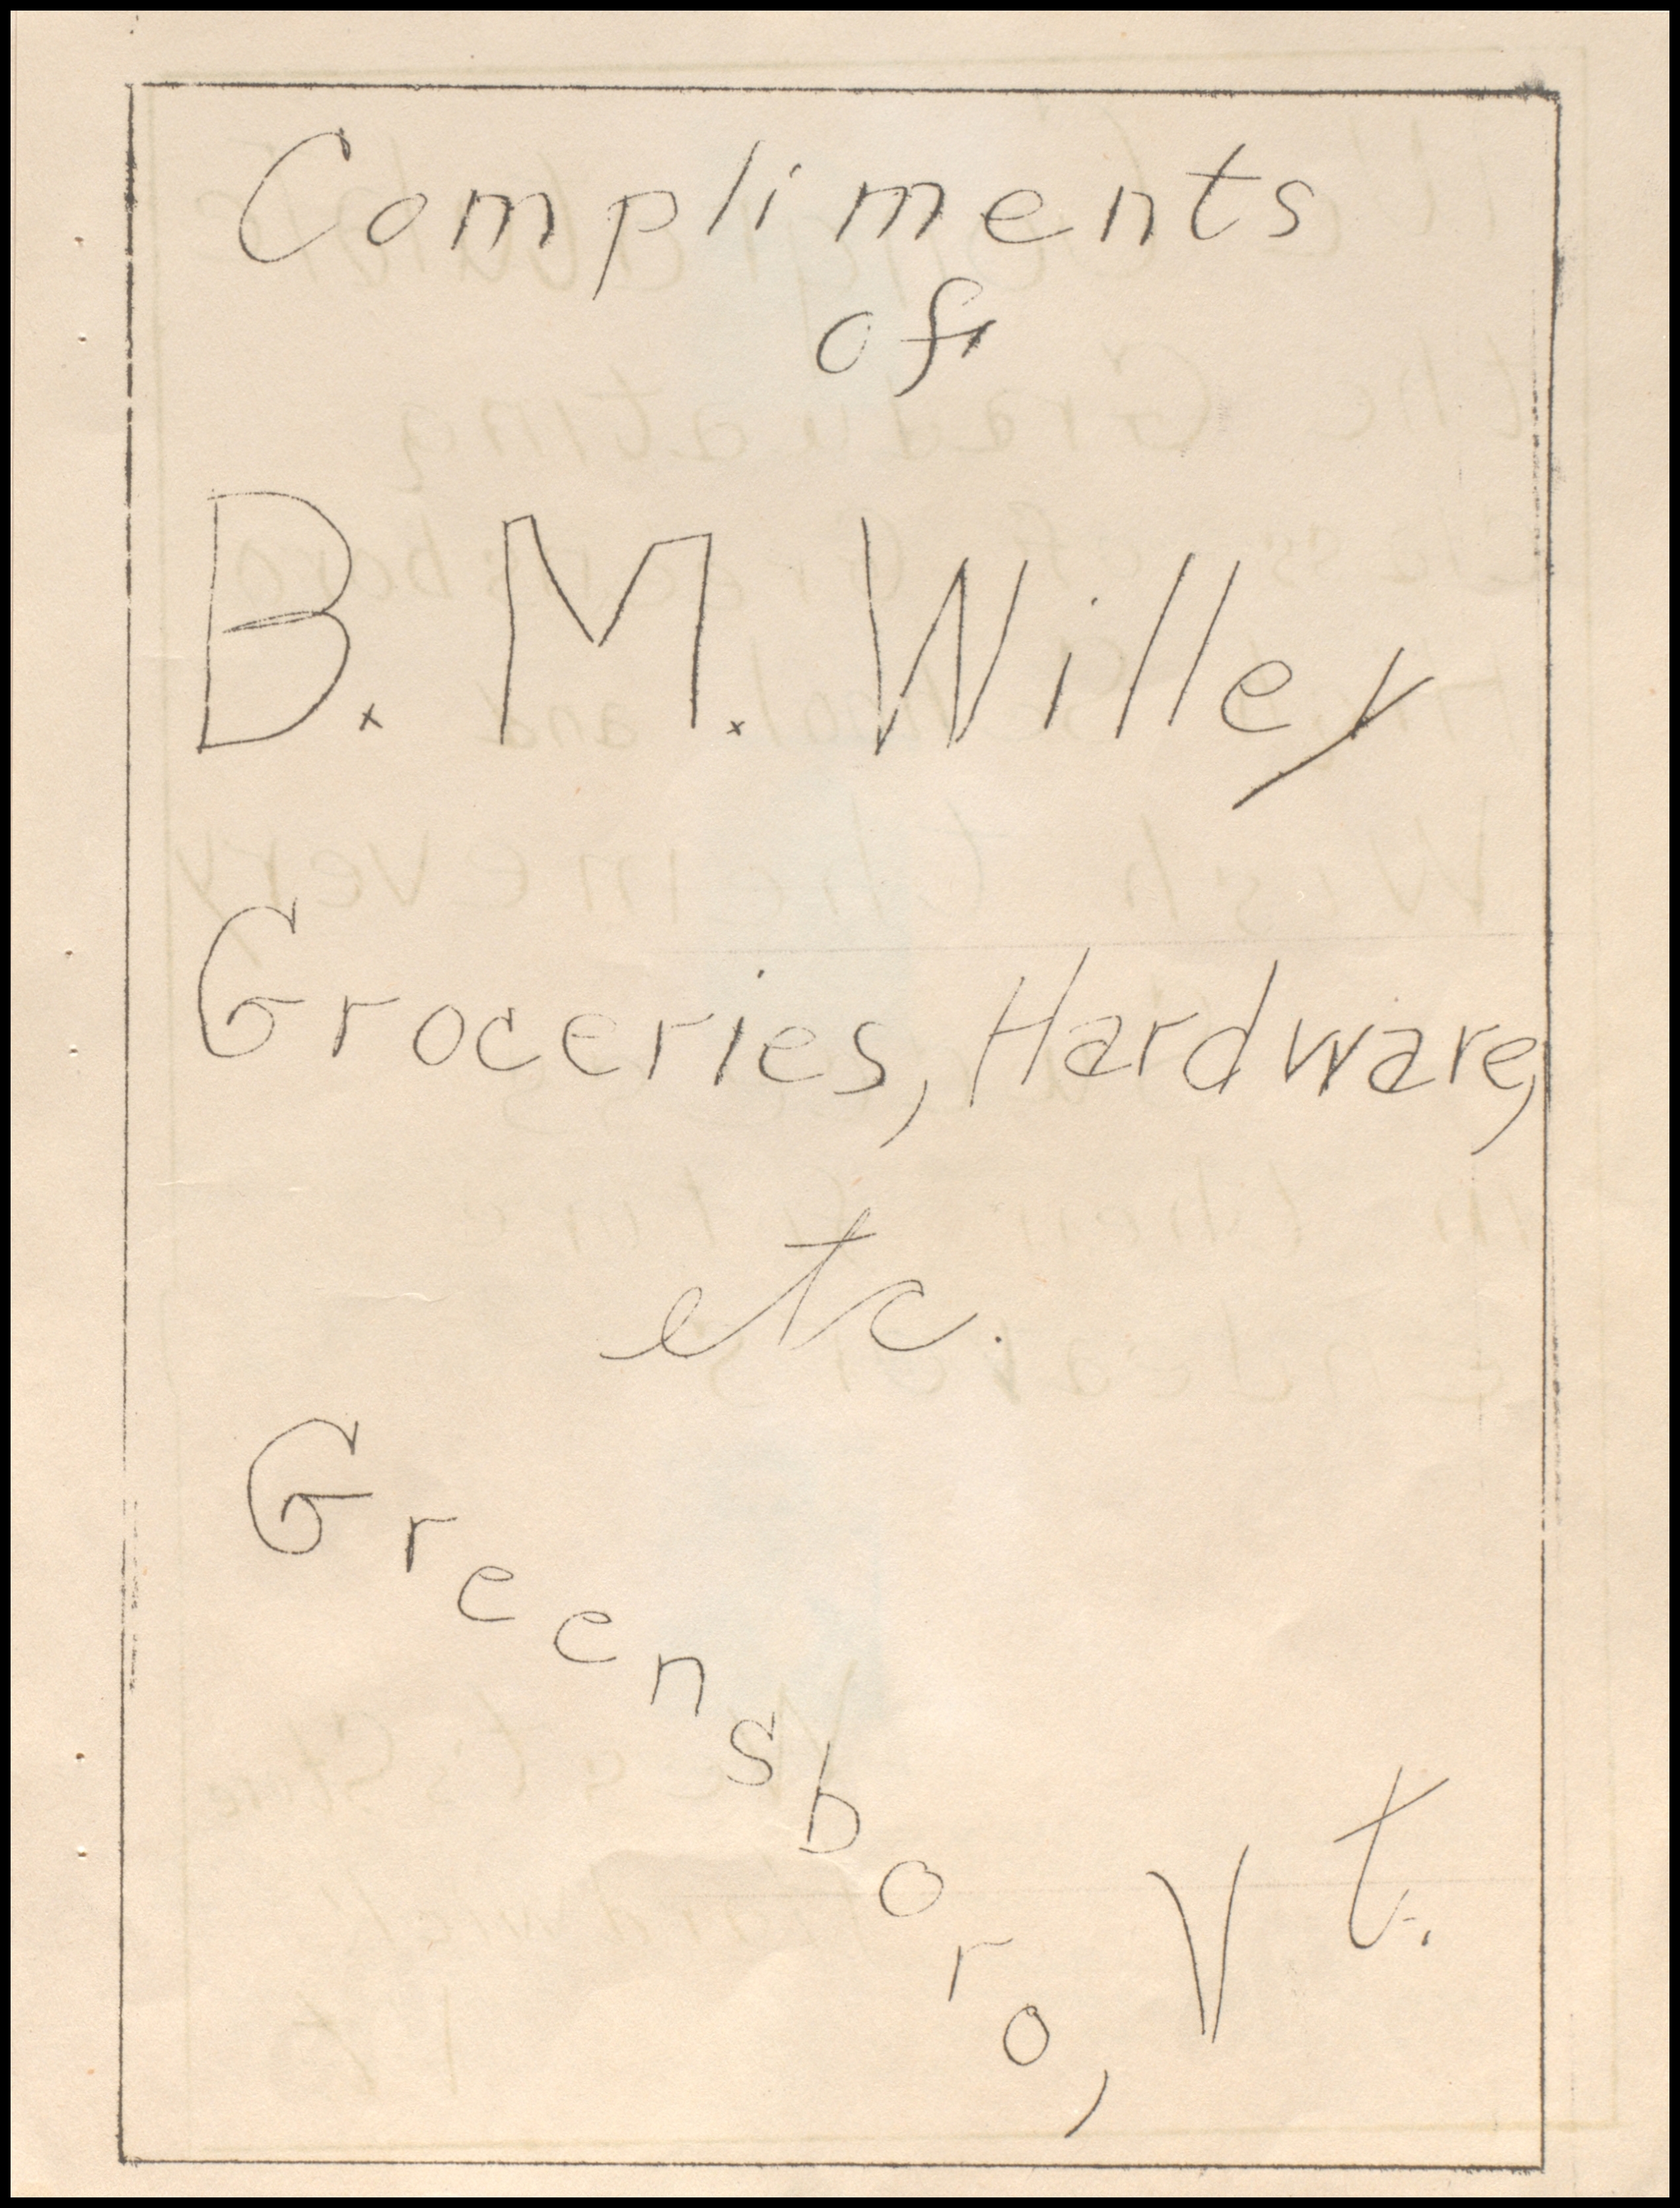 Compliments
of
B. M. Willey
Groceries, Hardware,
etc.
Greensboro, Vt.